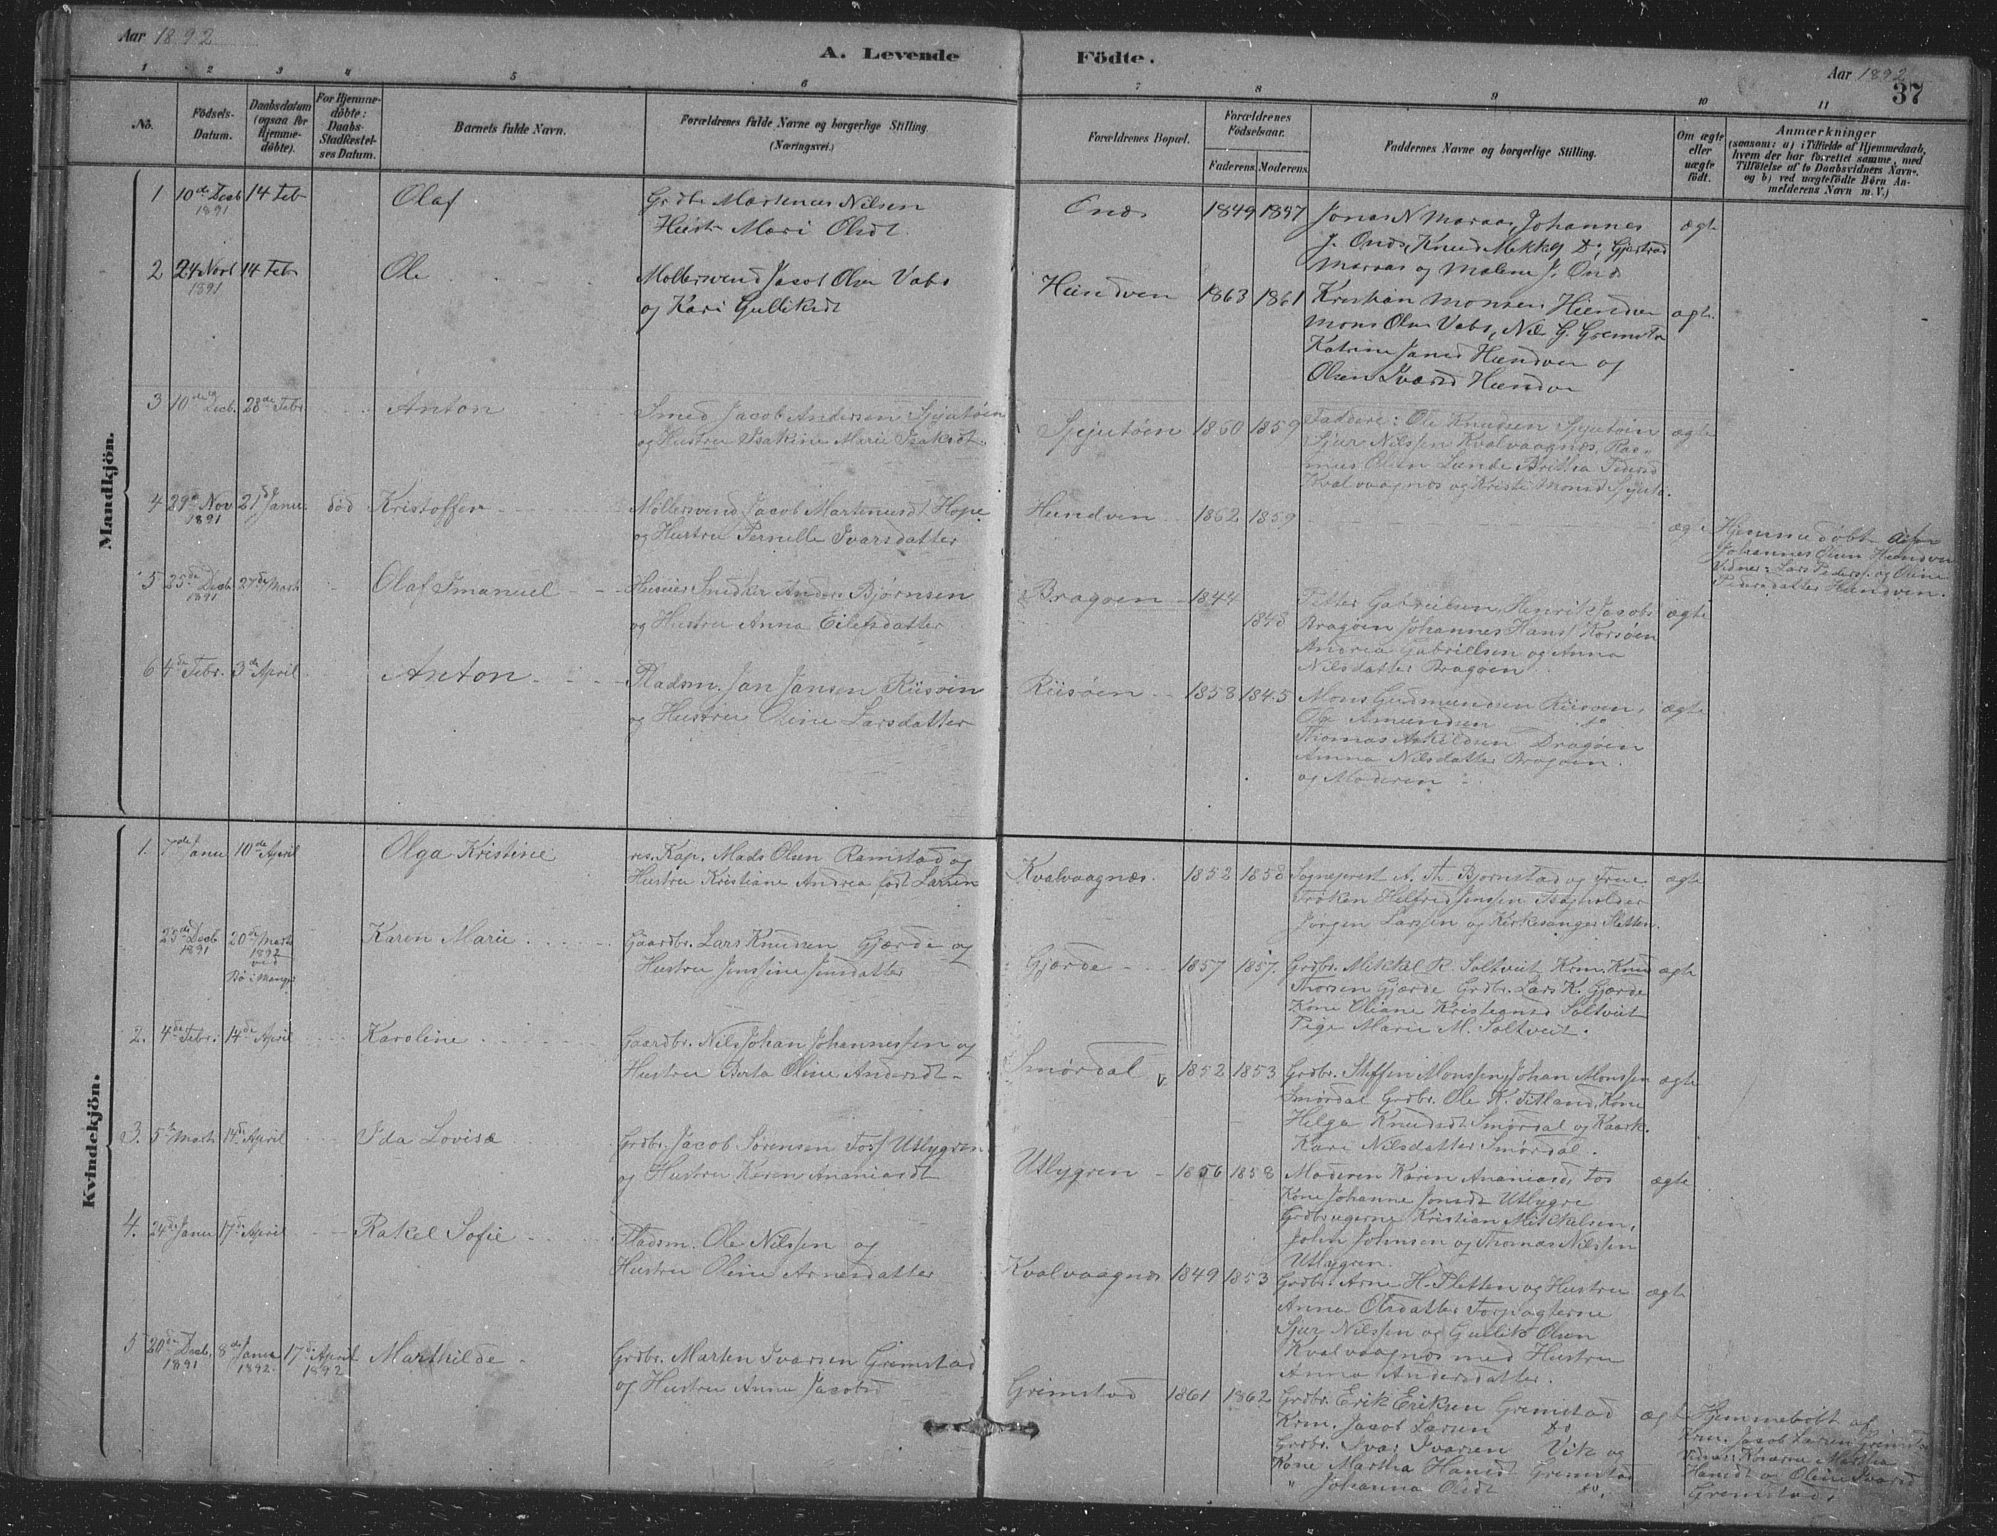 Aar 1892
A. Levende Födte.
Aar 1892
37
1 2 3 4 5 6 7 8 9 10 11
No.
Födsels-Datum.
Daabsdatum (ogsaa for Hjemme-döbte).
For Hjemme-döbte: Daabs-Stadfæstel-ses Datum.
Barnets fulde Navn.
Forældrenes fulde Navne og borgerlige Stilling
(Næringsvei.)
Forældrenes Bopæl.
Forældrenes Födselsaar.
Faderens. Moderens.
Faddernes Navne og borgerlige Stilling.
Om ægte eller uægte födt.
Anmærkninger
(saasom: a) i Tilfælde af Hjemmedaab,
hvem der har forrettet samme, med
Tilföielse af to Daabsvidners Navne,
og b) ved uægtefödte Børn An-
melderens Navn m. V.)
Mandkjön.
1 10de Decb 1891 14 Feb Olaf
Grdbr Martenus Nilsen
Hustr Mari Olsdt.
Onds 1849 1857
Jonas N Maraas, Johannes
J. Onds, Knud Mekkelg Do, Gjertrud
Maraas og Malene J. Onds
ægte
2 24 Novb 1891 14 Febr Ole
Møllersvend Jacob Olsen Vabø
og Kari Gulliksdt
Hundven 1863 1861
Kristian Monsen Hundven
Mons Olsen Vabø, Nils G. Gremstad
Katrine Jansd Hundven og
Olsen Ivarsd Hundven
ægte
3 10de Decb. 28de Febr Anton
Smed Jacob Andersen Spjutøen
og Hustru Isakine Marie Isaksdt.
Spjutøen 1860 1859
Faddere: Ole Knudsen Spjutøen
Sjur Nilssen Kvalvaagnæs, Ras-
mus Olsen Lunde Britha Pedersd
Kvalvaagnæs og Kristi Monsd Spjutø.
ægte
4 29de Nov 1891 21de Janu. død Kristoffer
Møllersvend Jacob Martenusdt Hope
og Hustru Pernille Ivarsdatter
Hundven 1862 1859
ægte
Hjemmedøbt af
Johannes Olsen Hundven
Vidner: Lars Peders. og Oline
Pedersdatter Hundven.
5 25de Decb 1891 27de Marts Olaf Imanuel
Husm Snidker Anders Bjørnsen
og Hustru Anna Eilefsdatter
Bragøen 1844 1848
Petter Gabrielsen, Henrik Jacobs
Bragøen Johannes Hans. Korsøen
Andrea Gabrielsen og Anna
Nilsdatter Bragøen
ægte
6 4de Febr. 3de April Anton
Pladsm. Jan Jansen Riisøen
og Hustru Oline Larsdatter
Riisøen 1858 1845
Mons Gudmundsen Riisøen,
Ole Amundsen do
Thomas Askildsen Dragøen
Anna Nilsdatter Bragøen.
og Moderen
ægte
Kvindekjön.
1. 7de Janu 10de April Olga Kristine
res. Kap. Mads Olsen Ramstad og
Hustru Kristiane Andrea født Larsen
Kvalvaagnæs. 1852 1858
Sogneprest A. Th. Bjørnstad og Frue
Frøken Helfred Jenssen Isagholder
Jørgen Larssen og Kirkesanger Sletten.
ægte
25de Decb 1891 20de Marts 1892 ved Bø i Manger Karen Marie
Gaardbr. Lars Knudsen Gjærde og
Hustru Jenssine Jensdatter
Gjærde 1857 1857.
Grdbr. Mikkel R. Soltveit Krm. Knud
Thorsen Gjærde Grdbr. Lars K. Gjærde
Kone Oliane Kristensd Soltveit
Pige Marie M. Soltveit.
ægte
2. 4de Febr. 14de April Karoline
Gaardbr. Nils Johan Johannessen og
Hustru Berta Oline Andersdt
Smørdal 1852 1853
Grdbr. Steffen Monssen, Johan Monssen
Smørdal Grdbr. Ole K. Titland, Kone
Helga Knudsdt Smørdal og Kaark.
Kari Nilsdatter Smørdal.
ægte
3. 5te Marts 14de April Ida Lovise
Grdbr. Jacob Sørensen Fosf Utlygren
og Hustru Karen Ananiasdt
Utlygren 1856 1858
Moderen Karen Ananiasd, Fos
Kone Johanne Jonsdt Utlygre
Grdbrugerne Kristian Mikkelsen,
John Johnsen og Thomas Nilssen
Utlygren.
ægte
4. 24de Janu 17de April Rakel Sofie
Pladsm. Ole Nilssen og
Hustru Oline Arnesdatter
Kvalvaagnæs 1849 1853
Grdbr. Arne H. Sletten og Hustru
Anna Olsdatter Forpagterne
Sjur Nilssen og Gullik Olsen
Kvalvaagnæs med Hustru
Anna Andersdatter.
ægte
5 20de Decb. 1891 8de Janu 1892. 17de April 1892 Marthilde
Grdbr. Marten Ivarsen Gremstad
og Hustru Anna Jacobsd
Grimstad 1861 1862
Grdbr. Erik Eriksen Gremstad
Krm. Jacob Larsen Do
Grdbr. Ivar Ivarsen Vik og
Kone Martha Hansdt Gremstad
" Johanna Olsdt do.
ægt
Hjemmebøbt af
Krm. Jacob Larsen Grimstad
Vidner: Konerne Martha
Hansdt og Oline Ivarsd
Gremstad.